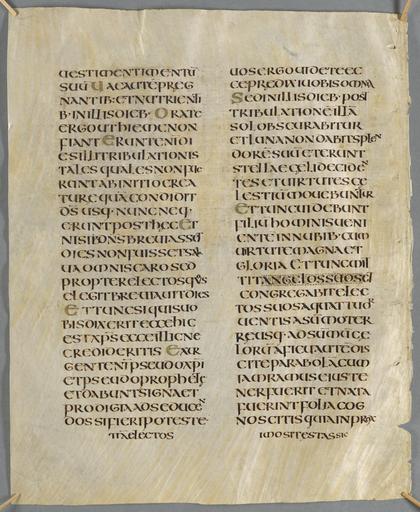 UESTIMENTIMENTŪ
SUŪ UAEAUTĒPREG
NANTIB· ETNUTRIENTI
B· INILLISDIEB· ORATE
ERGOUTHIEMENON
FIANT ERUNTENIDI
ESILLITRIBULATIONIS
TALESQUALESNONFUE
RUNTABINITIOCREA
TUREQUĀCONDIDIT
D̄S̄ USQ· NUNCNEQ·
ERUNTPOSTHEC ET
NISIDN̄SBREUIASSET
DIESNONFUISSETSAL
UAOMNISCAROSED
PROPTERELECTOSQUOS
ELEGITBREUIAUITDIES
ETTUNCSIQUISUO
BISDIXERITECCEHIC
ESTXP̄SECCEILLICNE
CREDIDERITIS EXUR
GENTENIPSEUDOXPI
ETPSEUDOPROPHETE
ETDABUNTSIGNAET
PRODIGIAADSEDUCEN
DOSSIFIERIPOTESTE
TIĀELECTOS
UOSERGOUIDETEEC
CEPREDIXIUOBISOMNIA
SEDINILLISDIEB· POST
TRIBULATIONĒILLĀ
SOLOBSCURABITUR
ETLUNANONDABITSPLEN
DORĒSUŪETERUNT
STELLAECELIDECIDEN
TESETUIRTUTESCE
LESTIŪMOUEBUNTUR
ETTUNCUIDEBUNT
FILIŪHOMINISUENI
ENTĒINNUBIB· CUM
UIRTUTEMAGNAET
GLORIA ETTUNCMIT
TITANGELOSSUOSET
CONGREGABITELEC
TOSSUOSAQUATTUOR
UENTISASŪMOTER
REUSQ· ADSŪMŪCE
LI
CITEPARABOLĀCUM
IAMRAMUSEIUSTE
NERFUERITETNATA
FUERINTFOLIACOG
NOSCITISQUIAINPROX
IMOSITESTASSIC